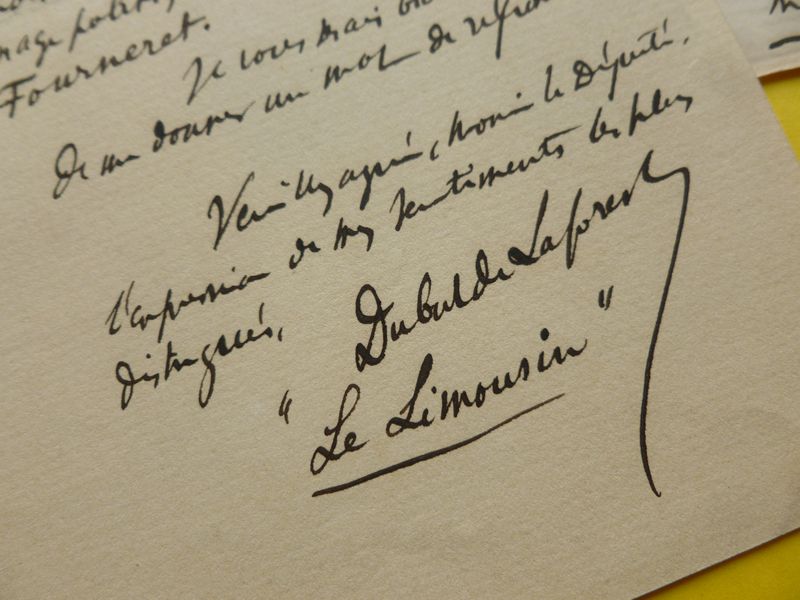 nage politiq
Fourneret.
Je vous serais bien
de me donner un mot de répon
Veuillez agréer, Monsieur le Député,
l'expression de mes sentiments les plus
distingués,
Dubut de Laforest
"Le Limousin"